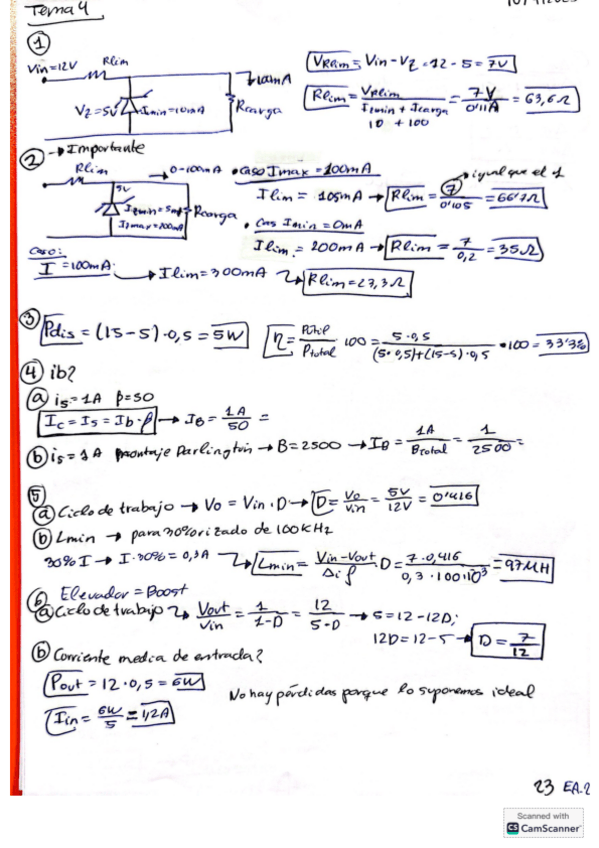 Tema 4
1
Vin=12V Rlim
100mA
Vz=5V Izmin=10mA Rcarga
VRlim = Vin-Vz = 12-5 = 7V
Rlim = VRlim / (Izmin + Icarga) = 7V / 0'11A = 63,6Ω
10 + 100
2 → Importante
Rlim 0-100mA
5V
Izmin=5mA
Izmax=200mA Rcarga
• Caso Imax = 100mA
Ilim = 105mA → Rlim = 7 / 0'105 = 66'7Ω
igual que el 1
• Caso Imin = 0mA
Ilim. = 200mA → Rlim = 7 / 0,2 = 35Ω
Caso:
I = 100mA: → Ilim=300mA → Rlim=23,3Ω
3 Pdis = (15-5)·0,5 = 5W η = Pútil / Ptotal 100 = 5·0,5 / (5·0,5)+(15-5)·0,5 •100 = 33'3%
4 ib?
a is=1A β=50
Ic = Is = Ib·β → IB = 1A / 50 =
b is=1A montaje Darlington → B=2500 → IB = 1A / Btotal = 1 / 2500 =
5
a Ciclo de trabajo → Vo = Vin·D → D = Vo / Vin = 5V / 12V = 0'416
b Lmin → para 30% rizado de 100KHz
30% I → I·30% = 0,3A → Lmin = Vin-Vout / Δi f ·D = 7·0,416 / 0,3·100·10³ = 97μH
6 Elevador = Boost
a Ciclo de trabajo → Vout / Vin = 1 / 1-D = 12 / 5-D → 5=12-12D;
12D=12-5 → D = 7 / 12
b Corriente media de entrada?
Pout = 12·0,5 = 6W
No hay pérdidas porque lo suponemos ideal
Iin = 6W / 5 = 1,2A
23 EA.2
Scanned with
CS CamScanner